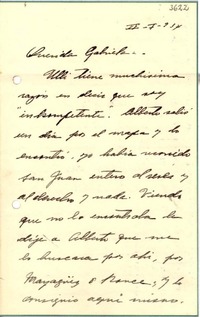 3622
Querida Gabriela.-
Ulli tiene muchísima
razón en decir que soy
"inkompetente". Alberto salió
un día por el mapa y lo
encontró. yo había recorrido
San Juan entero al revés y
al derecho y nada. Viendo
que no lo encontraba le
dije a Alberto que me
lo buscara por ahí, por
Mayagüez o Ponce, y lo
consiguió aquí mismo.